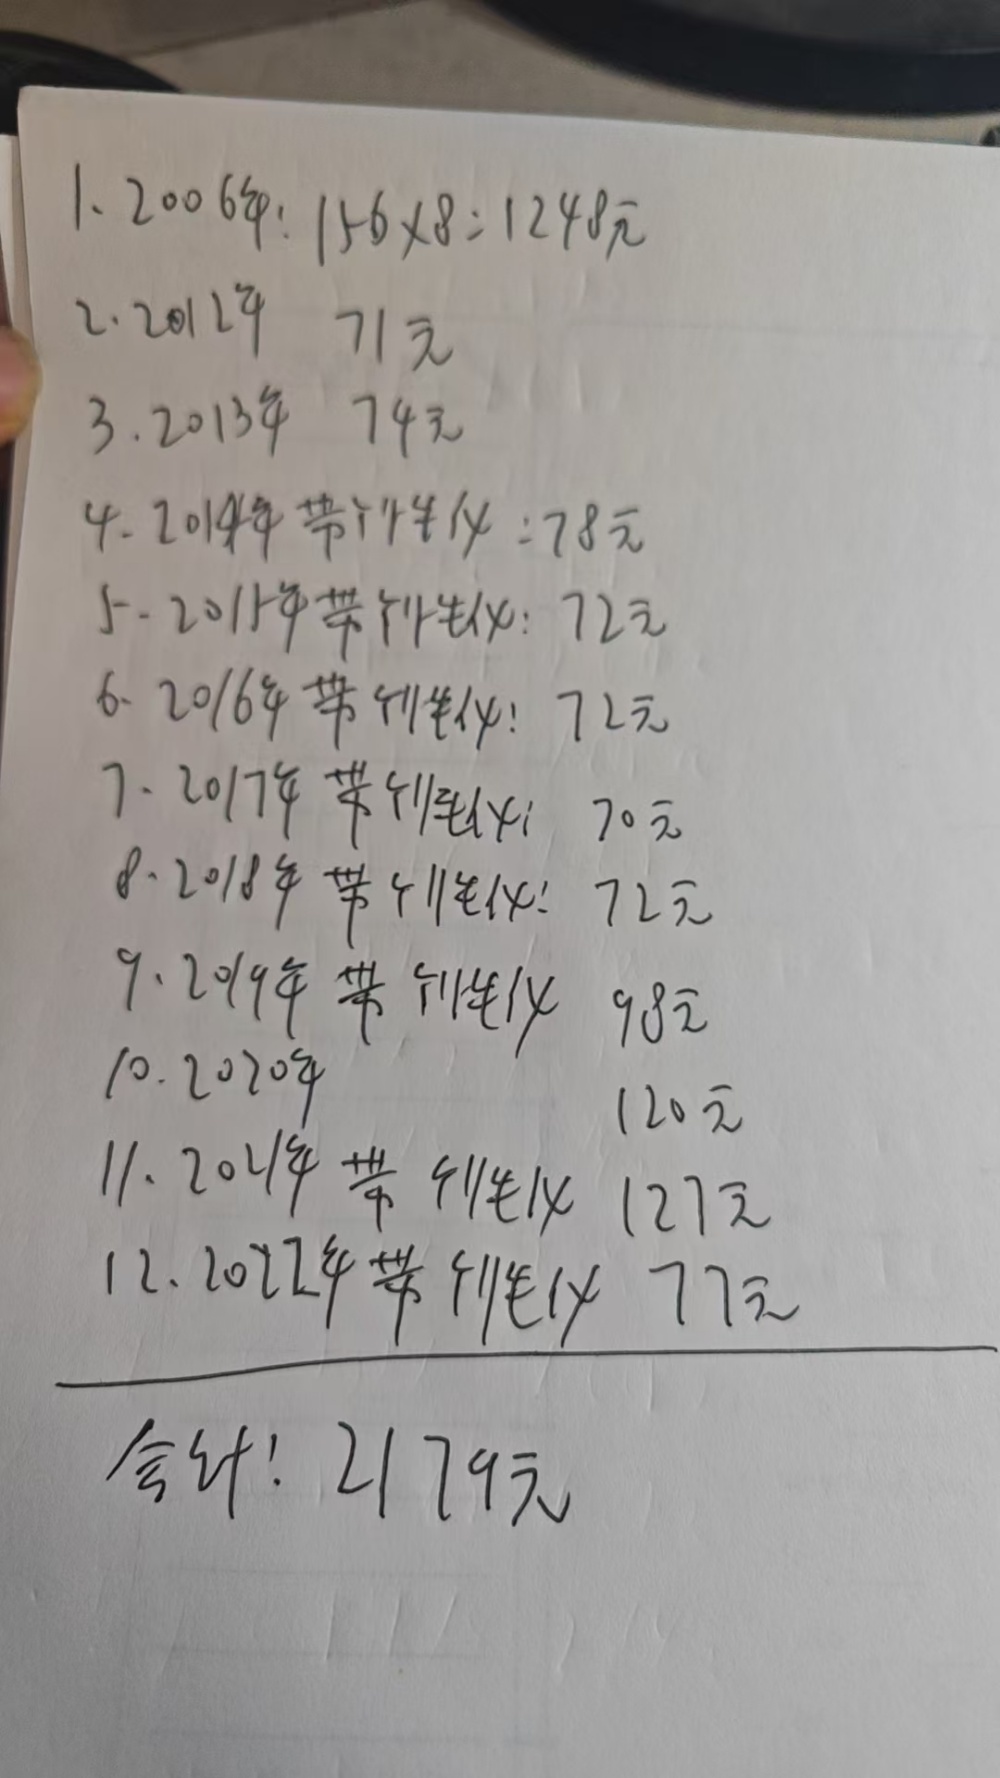 1、2006年：156×8=1248元
2.2012年 71元
3.2013年 74元
4.2014年带钏生仪：78元
5.2015年带钏生仪：72元
6.2016年带钏生仪：72元
7.2017年带钏生仪：70元
8.2018年带钏生仪：72元
9.2019年带钏生仪 98元
10.2020年 120元
11.2021年带钏生仪 127元
12.2022年带钏生仪 77元
合计：2179元